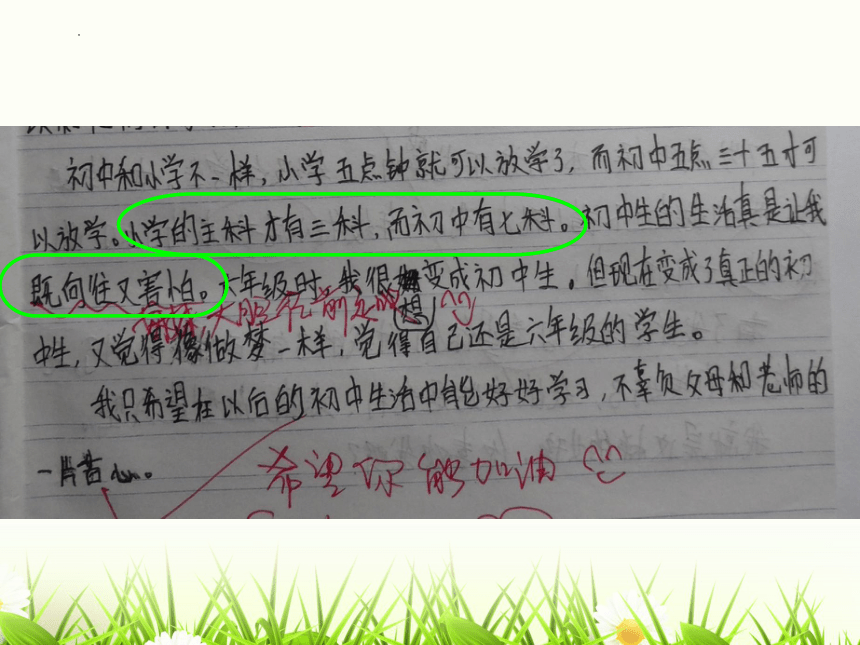 初中和小学不一样，小学五点钟就可以放学了，而初中五点三十五才可
以放学。小学的主科才有三科，而初中有七科。初中生的生活真是让我
既向往又害怕。六年级时，我很想变成初中生。但现在变成了真正的初
大胆在前走吧
中生，又觉得像做梦一样，觉得自己还是六年级的学生。
我只希望在以后的初中生活中能好好学习，不辜负父母和老师的
一片苦心。
希望你能加油